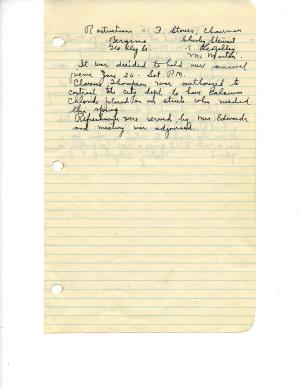 Restrictions - F. Stover, Chairman
Bergsma Shirley Stewart
Geo Kly Co. R. Kegelley
Mc Martin
It was decided to hold our annual
picnic June 26 - Sat. P.M.
Clarence Thompson was authorized to
contact the city dept to have Calcium
Chloride placed on streets who needed
this spring.
Refreshments were served by Mrs. Edwards
and meeting was adjourned.